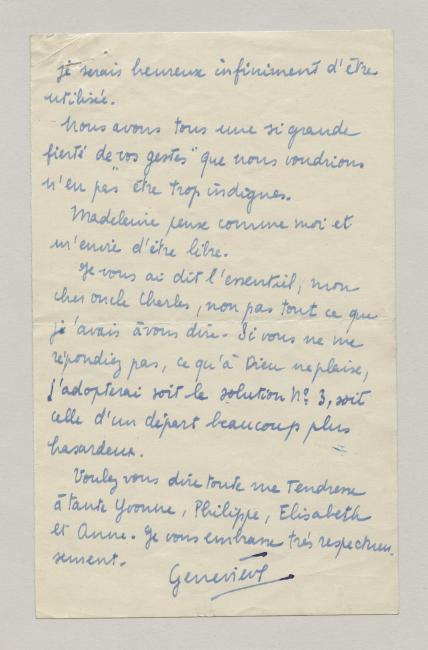 je serais heureux infiniment d'être
utilisée.
Nous avons tous une si grande
fierté de vos "gestes" que nous voudrions
n'en pas être trop indignes.
Madeleine pense comme moi et
m'envie d'être libre.
Je vous ai dit l'essentiel, mon
cher oncle Charles, non pas tout ce que
j'avais à vous dire. Si vous ne me
répondiez pas, ce qu'à Dieu ne plaise,
j'adopterai soit la solution No 3, soit
celle d'un départ beaucoup plus
hasardeux.
Voulez vous dire toute ma Tendresse
à tante Yvonne, Philippe, Elisabeth
et Anne. Je vous embrasse très respectueu-
sement.
Geneviève